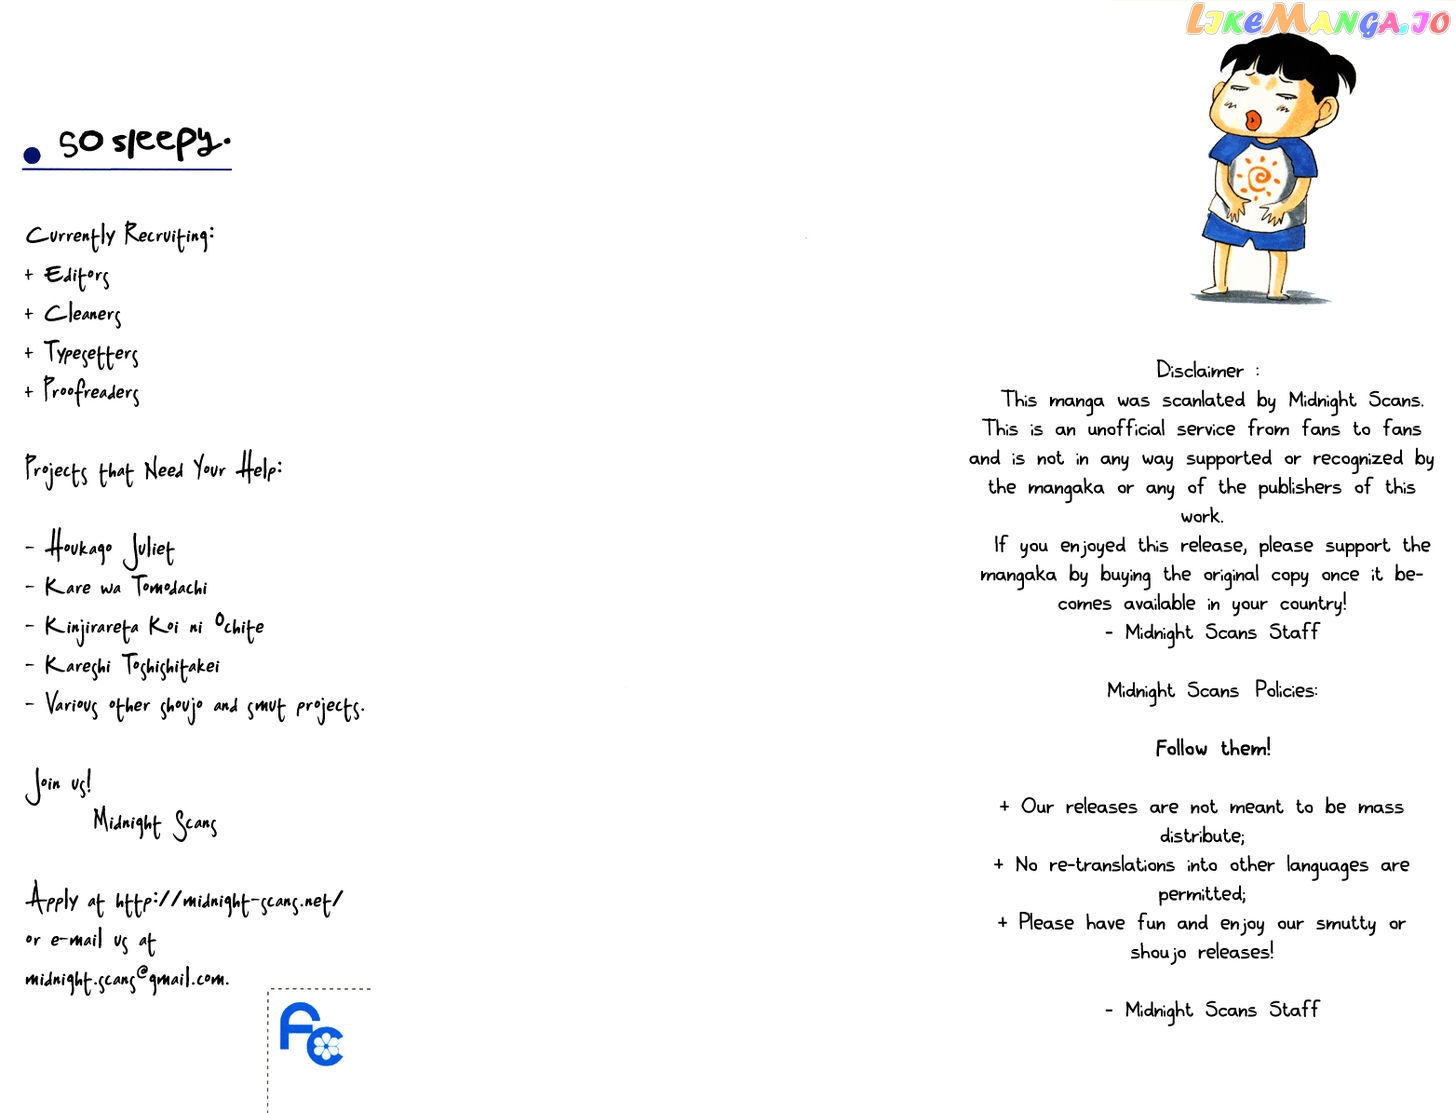 LikeManga.io
so sleepy.
Currently Recruiting:
+ Editors
+ Cleaners
+ Typesetters
+ Proofreaders
Projects that Need Your Help:
- Houkago Juliet
- Kare wa Tomodachi
- Kinjirareta Koi ni Ochite
- Kareshi Toshishitakei
- Various other shoujo and smut projects.
Join us!
Midnight Scans
Apply at http://midnight-scans.net/
or e-mail us at
midnight.scans@gmail.com.
FC
Disclaimer :
This manga was scanlated by Midnight Scans.
This is an unofficial service from fans to fans
and is not in any way supported or recognized by
the mangaka or any of the publishers of this
work.
If you enjoyed this release, please support the
mangaka by buying the original copy once it be-
comes available in your country!
- Midnight Scans Staff
Midnight Scans Policies:
Follow them!
+ Our releases are not meant to be mass
distribute;
+ No re-translations into other languages are
permitted;
+ Please have fun and enjoy our smutty or
shoujo releases!
- Midnight Scans Staff